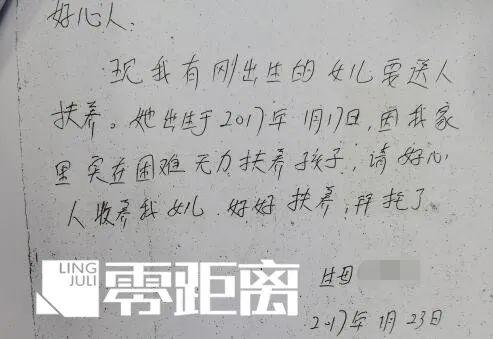 好心人.
现我有刚出生的女儿要送人
扶养。她出生于2017年1月17日,因我家
里实在困难无力扶养孩子,请好心
人收养我女儿.好好扶养,拜托了
LING
JULI
零距离
生母
2017年1月23日